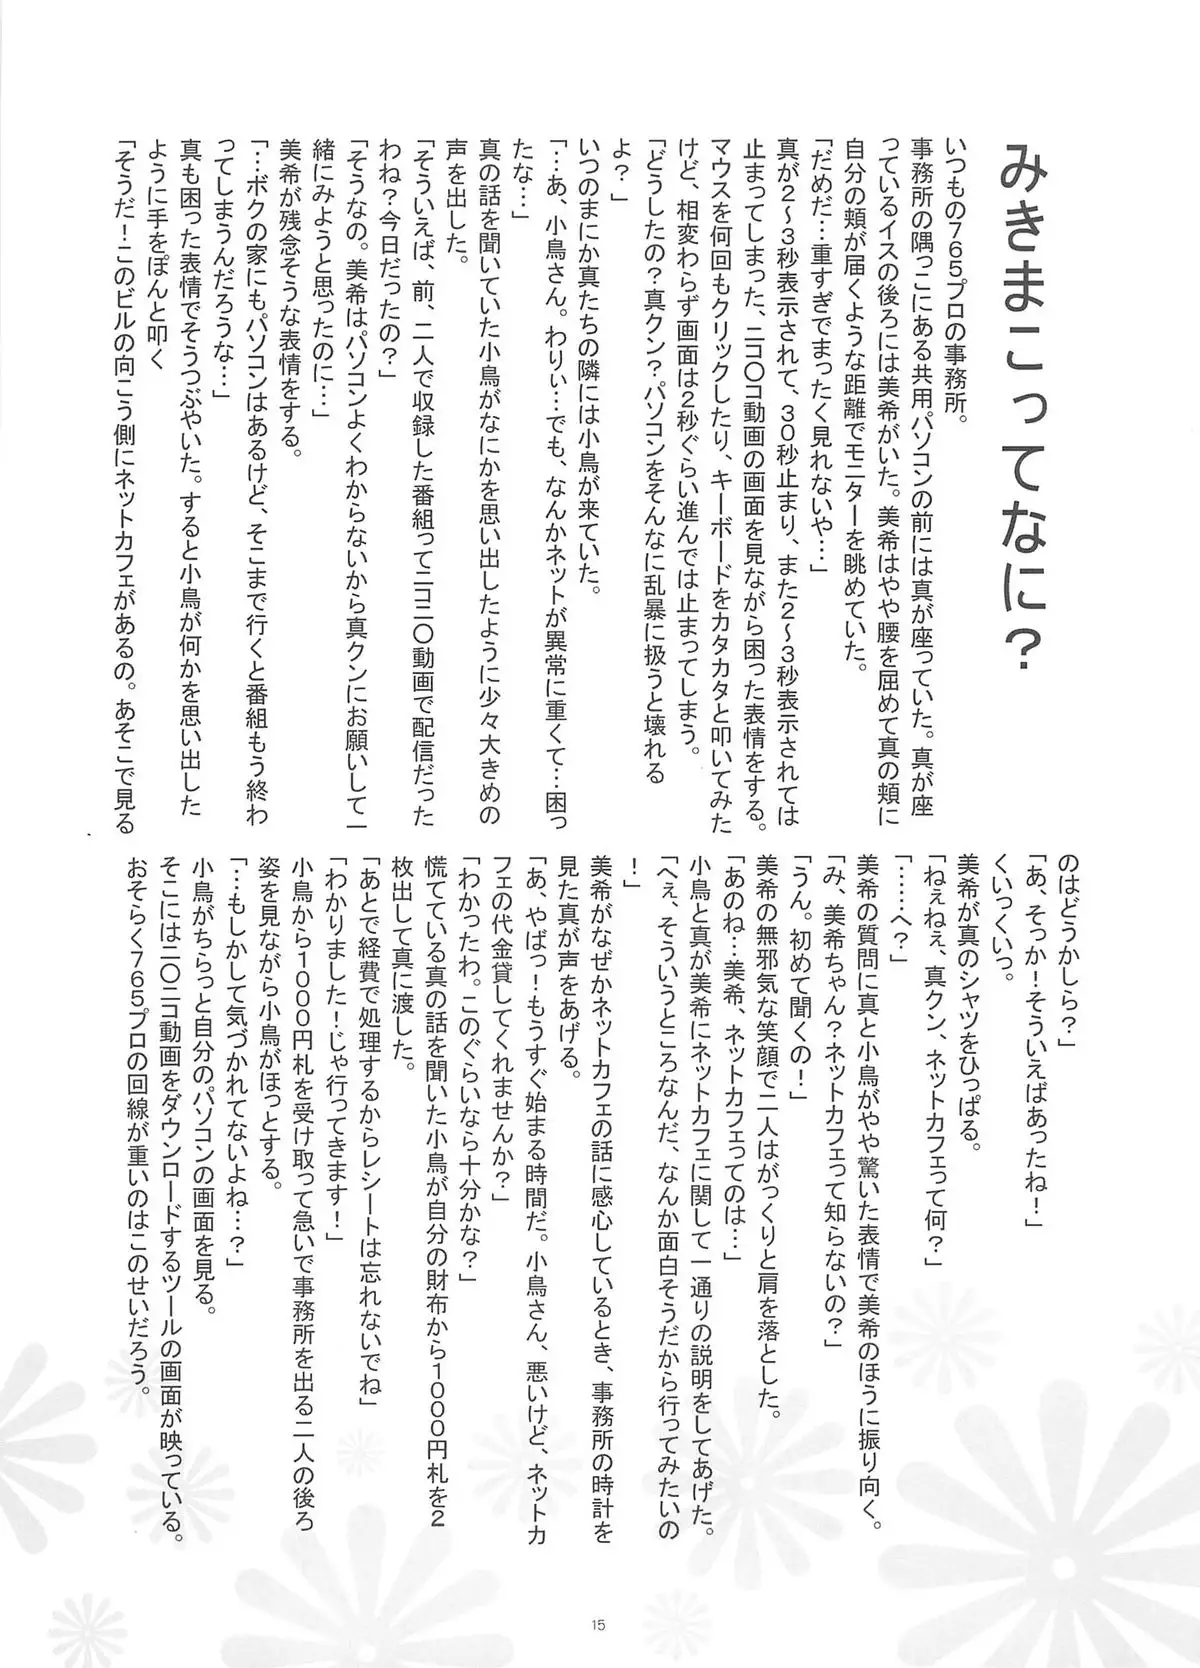 みきまこってなに？
いつもの765プロの事務所。
事務所の隅っこにある共用パソコンの前には真が座っていた。真が座
っているイスの後ろには美希がいた。美希はやや腰を屈めて真の頬に
自分の頬が届くような距離でモニターを眺めていた。
「だめだ…重すぎでまったく見れないや…」
真が2～3秒表示されて、30秒止まり、また2～3秒表示されては
止まってしまった、ニコ〇コ動画の画面を見ながら困った表情をする。
マウスを何回もクリックしたり、キーボードをカタカタと叩いてみた
けど、相変わらず画面は2秒ぐらい進んでは止まってしまう。
「どうしたの？真クン？パソコンをそんなに乱暴に扱うと壊れる
よ？」
いつのまにか真たちの隣には小鳥が来ていた。
「…あ、小鳥さん。わりぃ…でも、なんかネットが異常に重くて…困っ
たな…」
真の話を聞いていた小鳥がなにかを思い出したように少々大きめの
声を出した。
「そういえば、前、二人で収録した番組ってニコニ〇動画で配信だった
わね？今日だったの？」
「そうなの。美希はパソコンよくわからないから真クンにお願いして一
緒にみようと思ったのに…」
美希が残念そうな表情をする。
「…ボクの家にもパソコンはあるけど、そこまで行くと番組もう終わ
ってしまうんだろうな…」
真も困った表情でそうつぶやいた。すると小鳥が何かを思い出した
ように手をぽんと叩く
「そうだ！このビルの向こう側にネットカフェがあるの。あそこで見る
のはどうかしら？」
「あ、そっか！そういえばあったね！」
くいっくいっ。
美希が真のシャツをひっぱる。
「ねぇねぇ、真クン、ネットカフェって何？」
「……へ？」
美希の質問に真と小鳥がやや驚いた表情で美希のほうに振り向く。
「み、美希ちゃん？ネットカフェって知らないの？」
「うん。初めて聞くの！」
美希の無邪気な笑顔で二人はがっくりと肩を落とした。
「あのね…美希、ネットカフェってのは…」
小鳥と真が美希にネットカフェに関して一通りの説明をしてあげた。
「へぇ、そういうところなんだ、なんか面白そうだから行ってみたいの
！」
美希がなぜかネットカフェの話に感心しているとき、事務所の時計を
見た真が声をあげる。
「あ、やばっ！もうすぐ始まる時間だ。小鳥さん、悪いけど、ネットカ
フェの代金貸してくれませんか？」
「わかったわ。このぐらいなら十分かな？」
慌てている真の話を聞いた小鳥が自分の財布から1000円札を2
枚出して真に渡した。
「あとで経費で処理するからレシートは忘れないでね」
「わかりました！じゃ行ってきます！」
小鳥から1000円札を受け取って急いで事務所を出る二人の後ろ
姿を見ながら小鳥がほっとする。
「…もしかして気づかれてないよね…？」
小鳥がちらっと自分のパソコンの画面を見る。
そこにはニ〇ニコ動画をダウンロードするツールの画面が映っている。
おそらく765プロの回線が重いのはこのせいだろう。
15